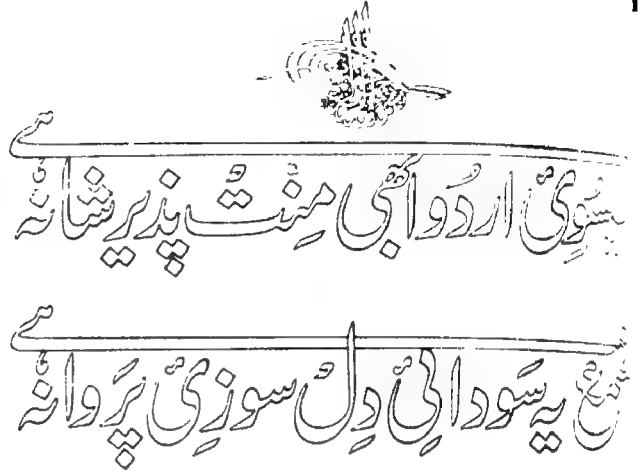 اردُو ابھی مِنّت پذیرِ شانہ ہے
یہ سَودائیٔ دِل سوزِیٔ پَروانہ ہے